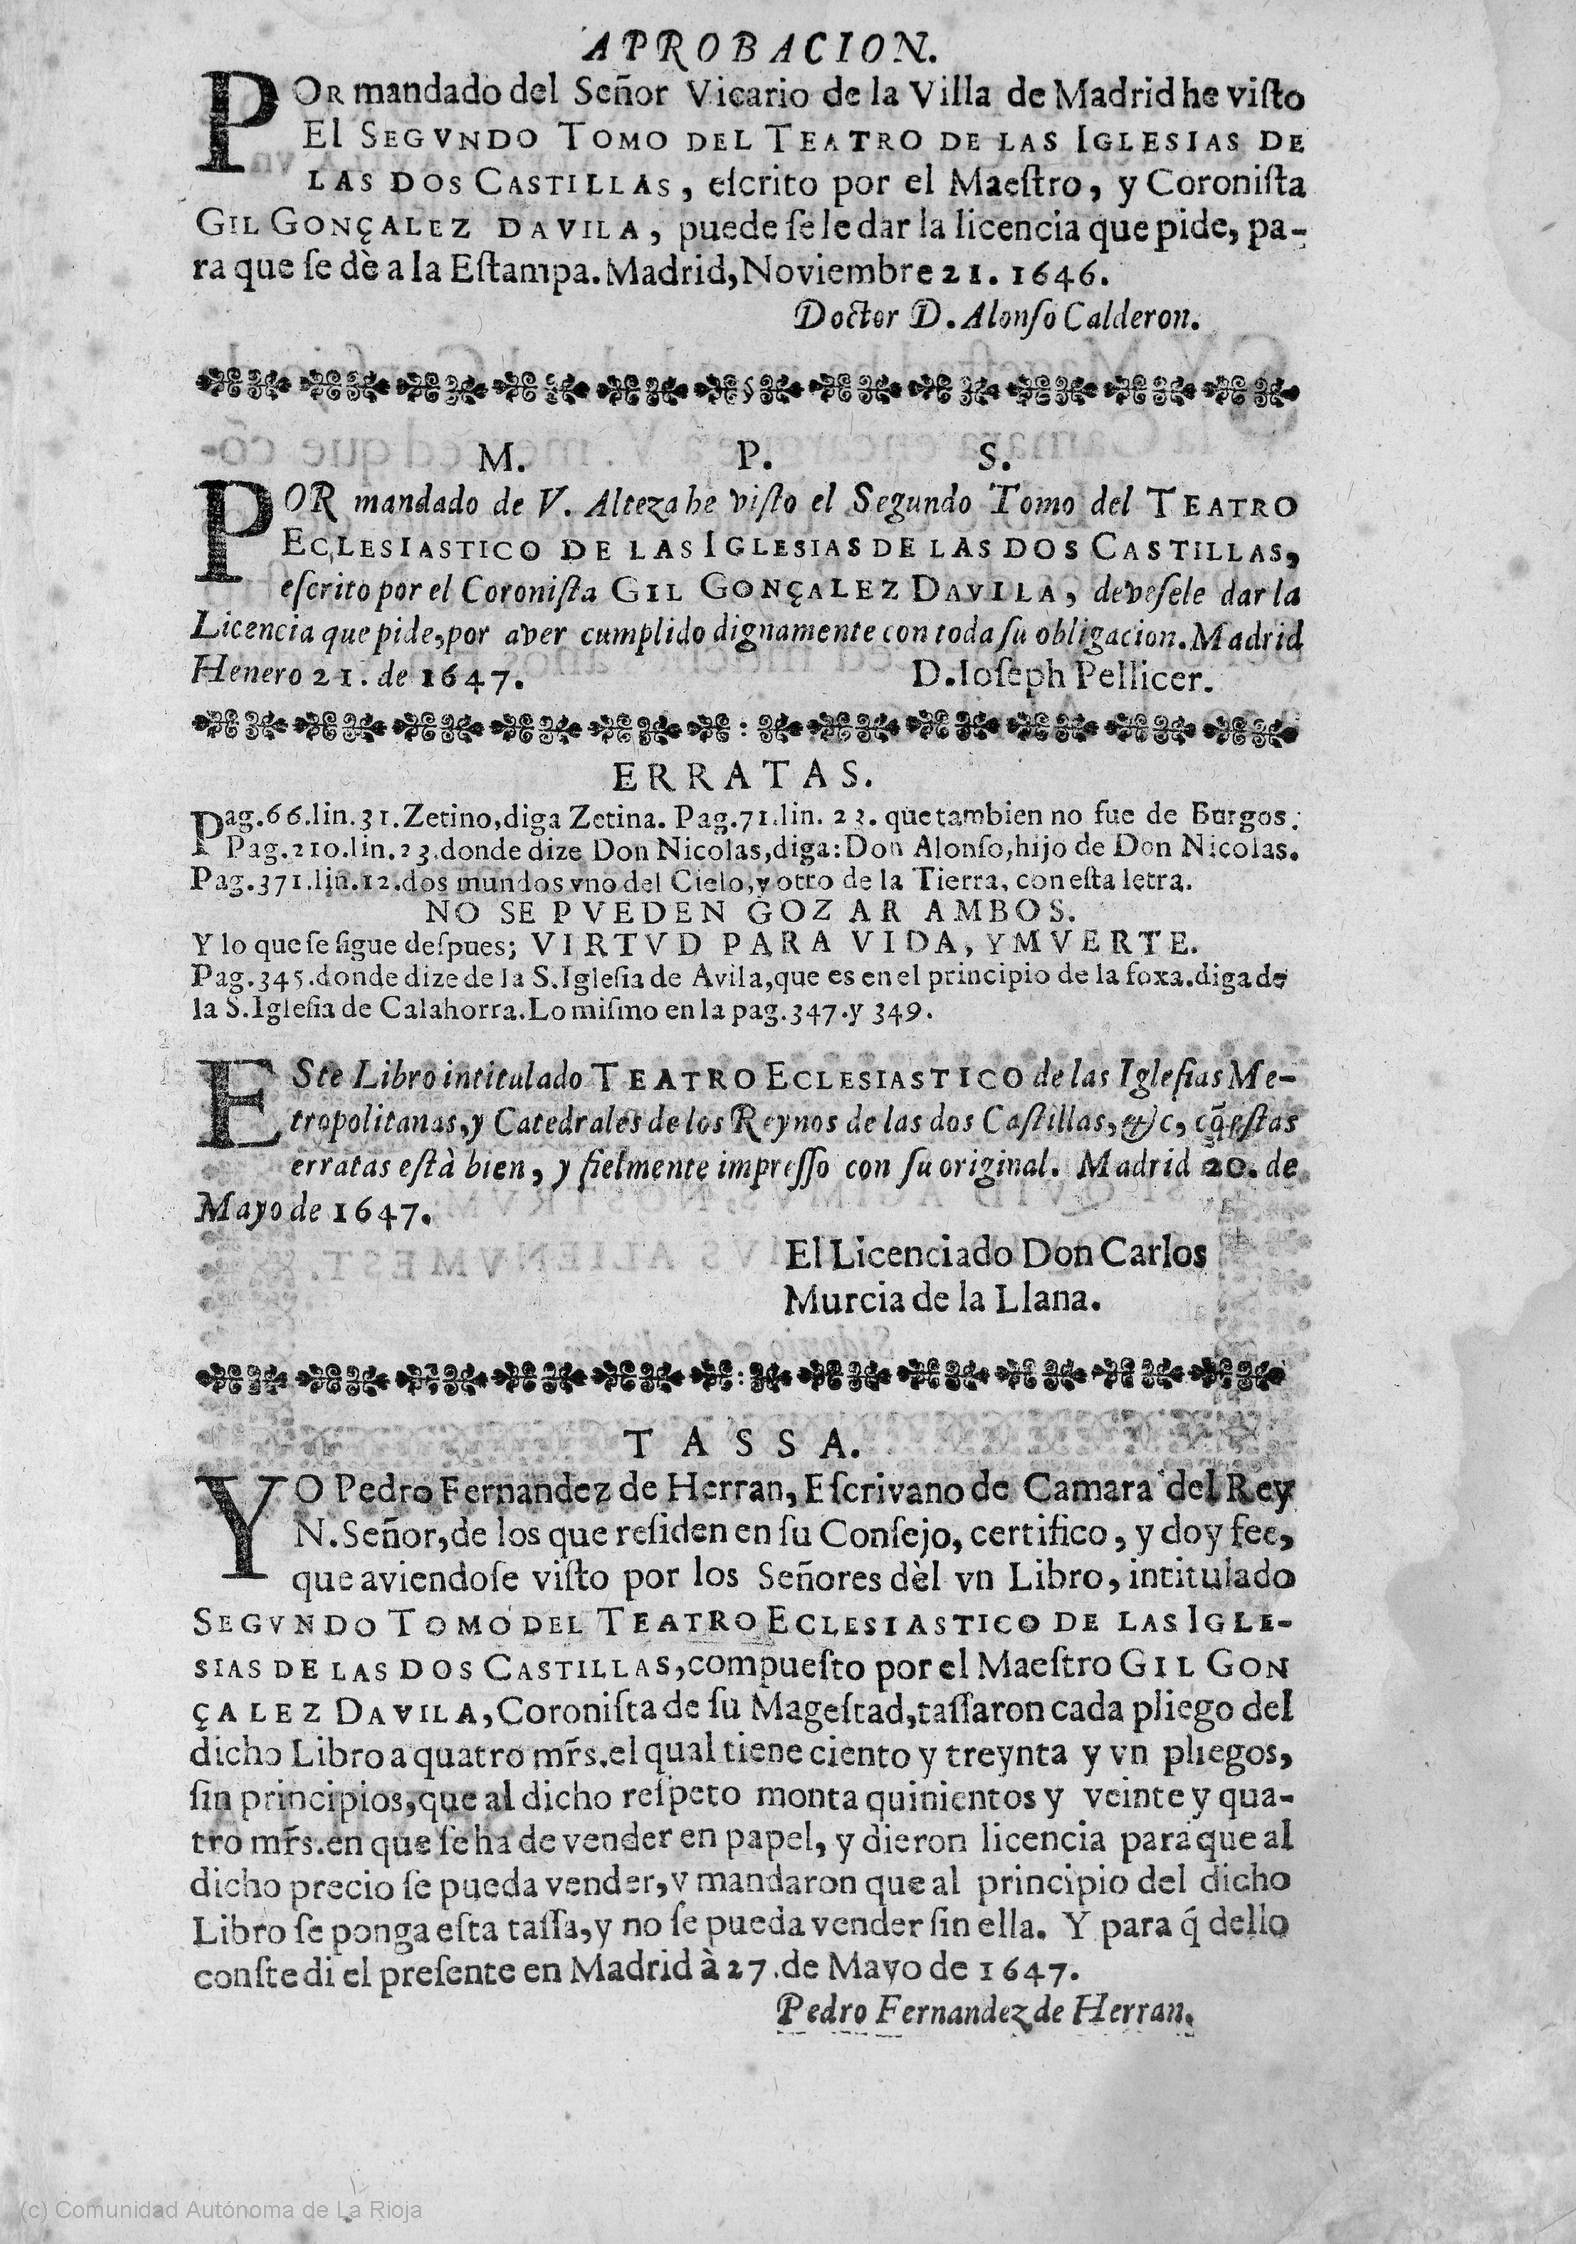 APROBACION.
POR mandado del Señor Vicario de la Villa de Madrid he visto
El SEGVNDO TOMO DEL TEATRO DE LAS IGLESIAS DE
LAS DOS CASTILLAS, escrito por el Maestro, y Coronista
GIL GONÇALEZ DAVILA, puede se le dar la licencia que pide, pa-
ra que se dè a la Estampa. Madrid, Noviembre 21. 1646.
Doctor D. Alonso Calderon.
M. P. S.
POR mandado de V. Alteza he visto el Segundo Tomo del TEATRO
ECLESIASTICO DE LAS IGLESIAS DE LAS DOS CASTILLAS,
escrito por el Coronista GIL GONÇALEZ DAVILA, devesele dar la
Licencia que pide, por aver cumplido dignamente con toda su obligacion. Madrid
Henero 21. de 1647. D. Ioseph Pellicer.
ERRATAS.
Pag. 66. lin. 31. Zetino, diga Zetina. Pag. 71. lin. 23. que tambien no fue de Burgos.
Pag. 210. lin. 23. donde dize Don Nicolas, diga: Don Alonso, hijo de Don Nicolas.
Pag. 371. lin. 12. dos mundos vno del Cielo, y otro de la Tierra, con esta letra.
NO SE PVEDEN GOZAR AMBOS.
Y lo que se sigue despues; VIRTVD PARA VIDA, Y MVERTE.
Pag. 345. donde dize de la S. Iglesia de Avila, que es en el principio de la foxa. diga de
la S. Iglesia de Calahorra. Lo mismo en la pag. 347. y 349.
ESte Libro intitulado TEATRO ECLESIASTICO de las Iglesias Me-
tropolitanas, y Catedrales de los Reynos de las dos Castillas, &c, cõ estas
erratas està bien, y fielmente impresso con su original. Madrid 20. de
Mayo de 1647.
El Licenciado Don Carlos
Murcia de la Llana.
TASSA.
YO Pedro Fernandez de Herran, Escrivano de Camara del Rey
N. Señor, de los que residen en su Consejo, certifico, y doy fee,
que aviendose visto por los Señores dèl vn Libro, intitulado
SEGVNDO TOMO DEL TEATRO ECLESIASTICO DE LAS IGLE-
SIAS DE LAS DOS CASTILLAS, compuesto por el Maestro GIL GON
ÇALEZ DAVILA, Coronista de su Magestad, tassaron cada pliego del
dicho Libro a quatro mr̃s. el qual tiene ciento y treynta y vn pliegos,
sin principios, que al dicho respeto monta quinientos y veinte y qua-
tro mr̃s. en que se ha de vender en papel, y dieron licencia para que al
dicho precio se pueda vender, y mandaron que al principio del dicho
Libro se ponga esta tassa, y no se pueda vender sin ella. Y para q̃ dello
conste di el presente en Madrid à 27. de Mayo de 1647.
Pedro Fernandez de Herran.
(c) Comunidad Autónoma de La Rioja